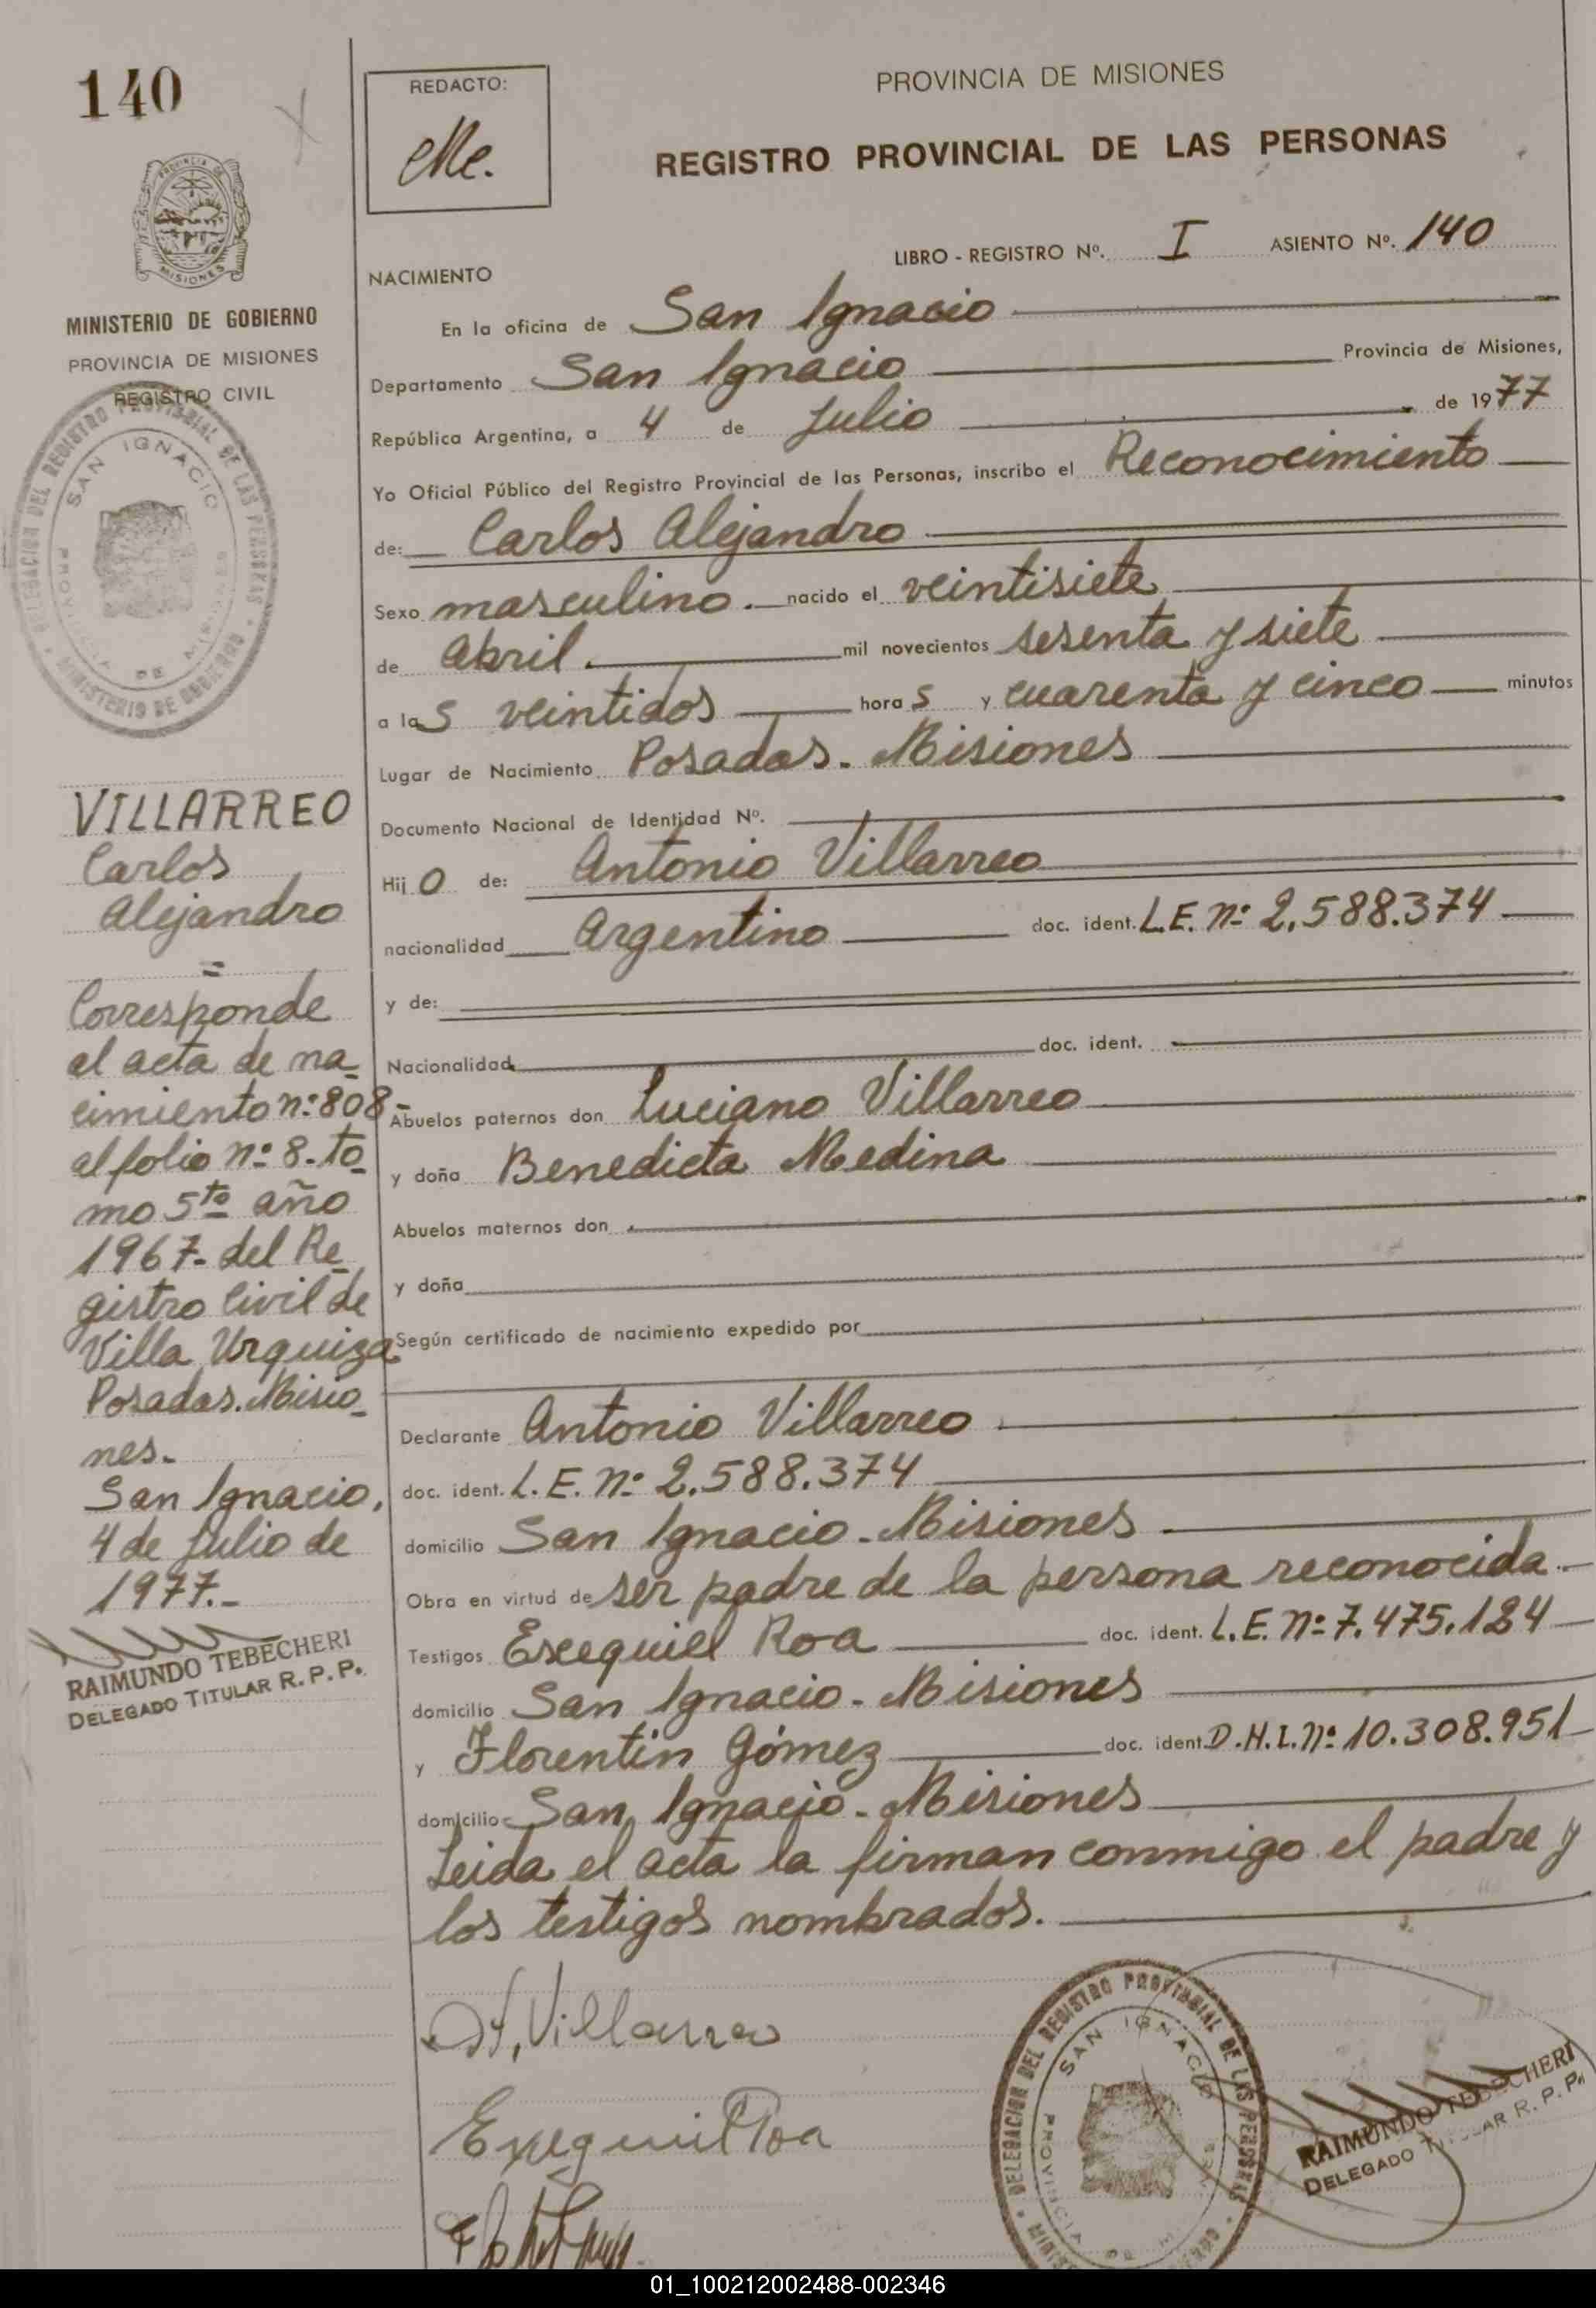 140
PROVINCIA DE
MISIONES
MINISTERIO DE GOBIERNO
PROVINCIA DE MISIONES
REGISTRO CIVIL
DELEGACION DEL REGISTRO PROVINCIAL DE LAS PERSONAS
SAN IGNACIO
PROVINCIA DE MISIONES
MINISTERIO DE GOBIERNO
VILLARREO
Carlos
Alejandro
=
Corresponde
al acta de na_
cimiento nº: 808-
al folio nº 8. to_
mo 5to año
1967- del Re_
gistro Civil de
Villa Urquiza
Posadas. Misio_
nes.
San Ignacio,
4 de Julio de
1977.-
RAIMUNDO TEBECHERI
DELEGADO TITULAR R. P. P.
REDACTO:
PROVINCIA DE MISIONES
REGISTRO PROVINCIAL DE LAS PERSONAS
LIBRO - REGISTRO Nº. I ASIENTO Nº. 140
NACIMIENTO
En la oficina de San Ignacio
Departamento San Ignacio Provincia de Misiones,
República Argentina, a 4 de Julio de 1977
Yo Oficial Público del Registro Provincial de las Personas, inscribo el Reconocimiento
de: Carlos Alejandro
Sexo masculino. nacido el veintisiete
de Abril. mil novecientos sesenta y siete
a las veintidos horas y cuarenta y cinco minutos
Lugar de Nacimiento Posadas. Misiones
Documento Nacional de Identidad Nº.
Hijo de: Antonio Villarreo
nacionalidad Argentino doc. ident. L.E. nº 2.588.374
y de:
Nacionalidad doc. ident.
Abuelos paternos don Luciano Villarreo
y doña Benedicta Medina
Abuelos maternos don
y doña
Según certificado de nacimiento expedido por
Declarante Antonio Villarreo
doc. ident. L.E. nº 2.588.374
domicilio San Ignacio. Misiones
Obra en virtud de ser padre de la persona reconocida.
Testigos Exequiel Roa doc. ident. L.E. nº 7.475.184
domicilio San Ignacio. Misiones
y Florentín Gómez doc. ident. D.N.I. nº 10.308.951
domicilio San Ignacio. Misiones
Leida el acta la firman conmigo el padre y
los testigos nombrados.
A, Villarreo
Exequiel Roa
DELEGACION DEL REGISTRO PROVINCIAL DE LAS PERSONAS
SAN IGNACIO
RAIMUNDO TEBECHERI
DELEGADO TITULAR R. P. P.
01_100212002488-002346